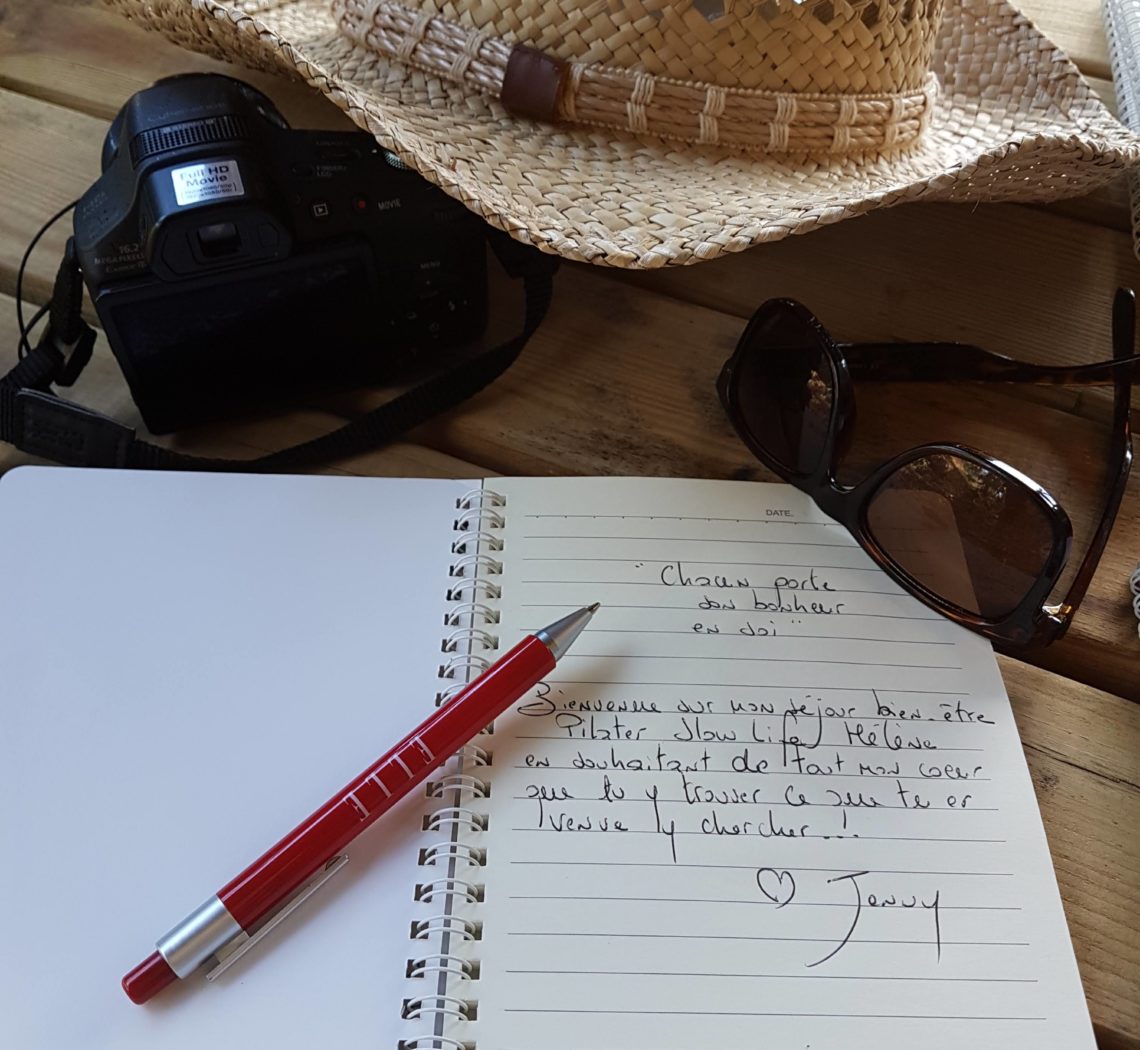 Full HD
Movie
MOVIE
16.2
MEGA PIXELS
MENU
DATE.
" Chacun porte
son bonheur
en soi "
Bienvenue sur mon séjour bien-être
Pilates Slow Life Hélène
en souhaitant de tout mon coeur
que tu y trouver ce que tu es
venue y chercher..!
♡ Jenny
ELLE